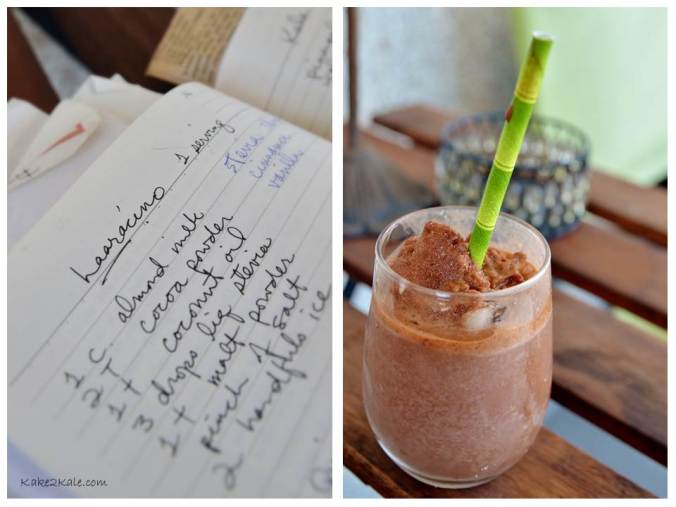 haaracino 1 serving
Stevia
cinnamon
vanilla
1 C almond milk
2 T cocoa powder
1 t coconut oil
3 drops liq stevia
1 t malt powder
pinch of salt
2 handfuls ice
Kale
Kake2Kale.com